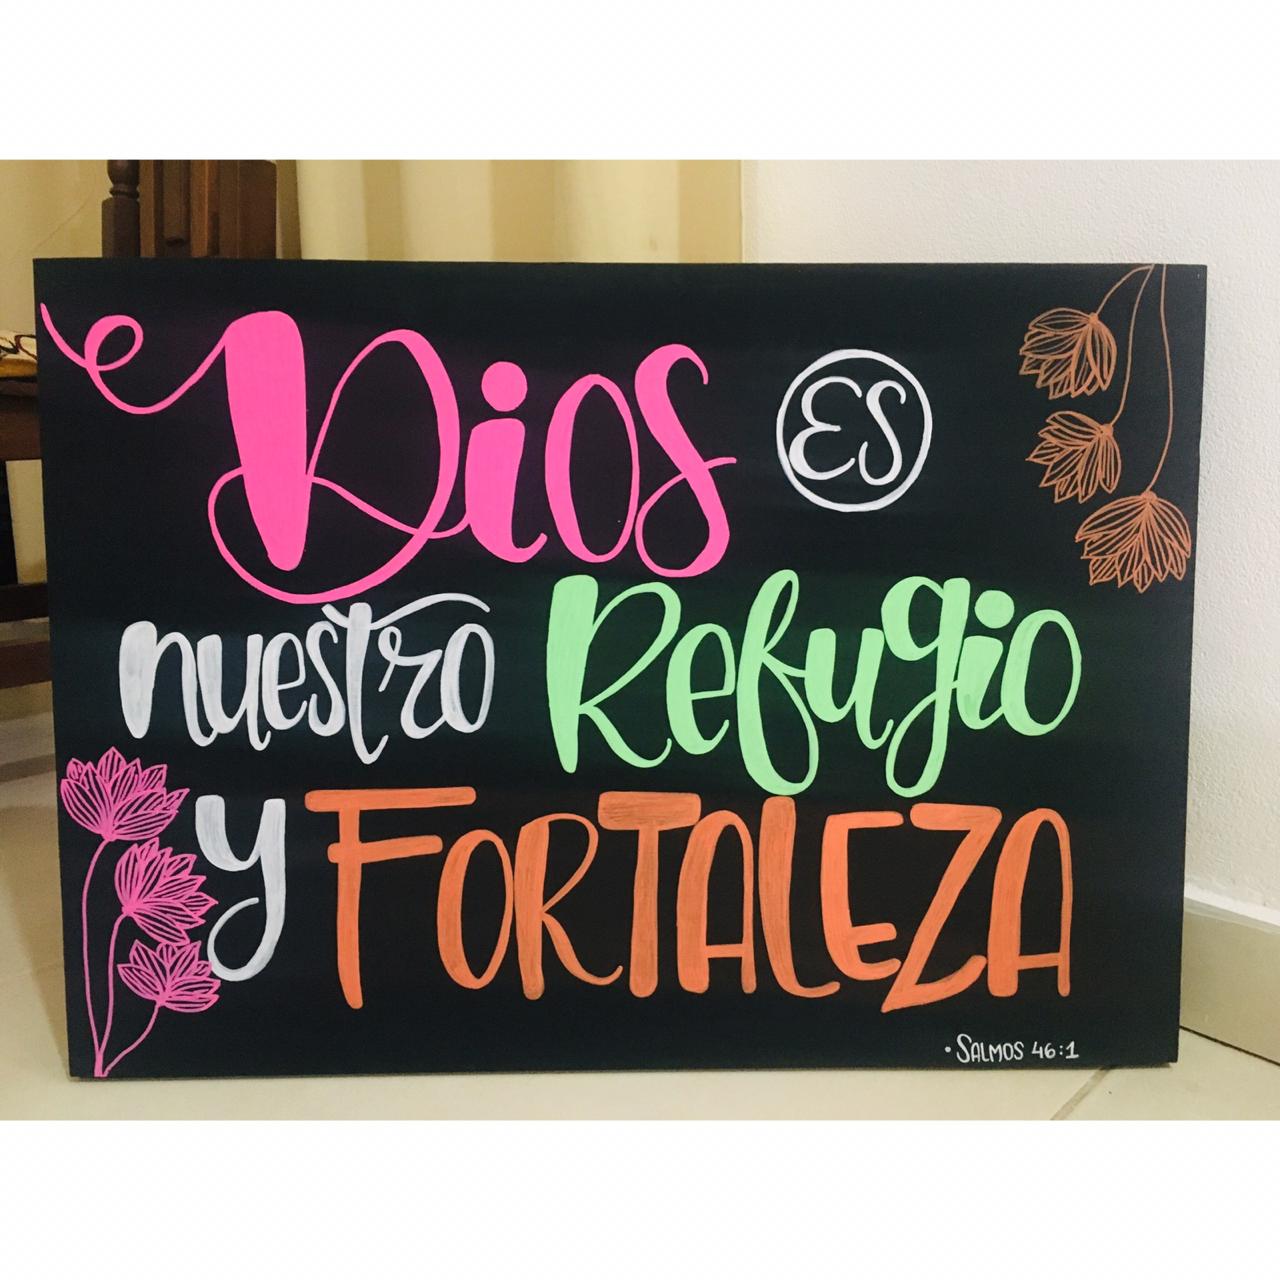 Dios ES
nuestro Refugio
y FORTALEZA
• SALMOS 46:1